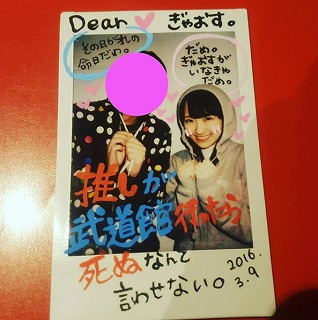 Dear ぎゃおす。
その日がオレの
命日だね。
だめ。
ぎゃおすが
いなきゃ
だめ。
推しが
武道館行ったら
死ぬなんて
言わせない。
2016.
3.9